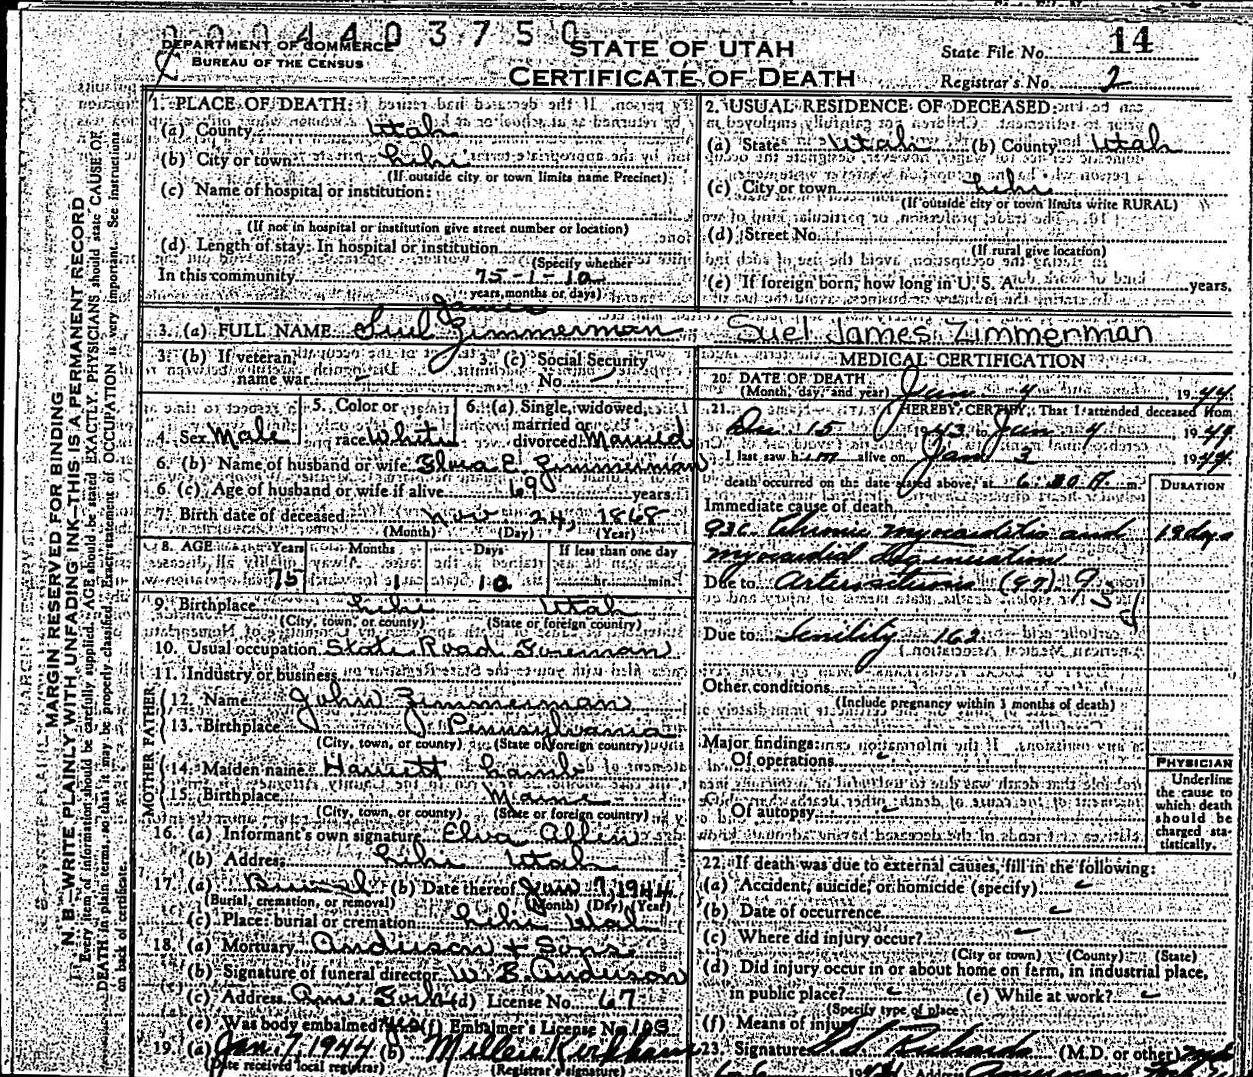 0004403750
DEPARTMENT OF COMMERCE
BUREAU OF THE CENSUS
STATE OF UTAH
CERTIFICATE OF DEATH
State File No. 14
Registrar's No. 2
MARGIN RESERVED FOR BINDING
N. B.—WRITE PLAINLY WITH UNFADING INK—THIS IS A PERMANENT RECORD
Every item of information should be carefully supplied. AGE should be stated EXACTLY. PHYSICIANS should state CAUSE OF
DEATH in plain terms, so that it may be properly classified. Exact statement of OCCUPATION is very important. See instructions
on back of certificate.
1. PLACE OF DEATH:
(a) County Utah
(b) City or town Lehi
(If outside city or town limits name Precinct)
(c) Name of hospital or institution:
(If not in hospital or institution give street number or location)
(d) Length of stay: In hospital or institution
(Specify whether
In this community 75-1-10
years, months or days)
2. USUAL RESIDENCE OF DECEASED:
(a) State Utah (b) County Utah
(c) City or town Lehi
(If outside city or town limits write RURAL)
(d) Street No.
(If rural give location)
(e) If foreign born, how long in U. S. A. years.
3. (a) FULL NAME Suel James Zimmerman
Suel James Zimmerman
3. (b) If veteran, name war –
3. (c) Social Security No. –
4. Sex Male
5. Color or race White
6. (a) Single, widowed, married or divorced Married
6. (b) Name of husband or wife Elva E. Zimmerman
6. (c) Age of husband or wife if alive 69 years
7. Birth date of deceased Nov 24, 1868
(Month) (Day) (Year)
8. AGE Years Months Days If less than one day
75 1 10 hr. min.
9. Birthplace Lehi Utah
(City, town, or county) (State or foreign country)
10. Usual occupation State Road Foreman
11. Industry or business
FATHER
12. Name John Zimmerman
13. Birthplace Pennsylvania
(City, town, or county) (State or foreign country)
MOTHER
14. Maiden name Harriett Lamb
15. Birthplace Maine
(City, town, or county) (State or foreign country)
16. (a) Informant's own signature Elva Allen
(b) Address Lehi Utah
17. (a) Burial (b) Date thereof Jan 7, 1944
(Burial, cremation, or removal) (Month) (Day) (Year)
(c) Place: burial or cremation Lehi Utah
18. (a) Mortuary Anderson + Sons
(b) Signature of funeral director W. B. Anderson
(c) Address Am. Fork (d) License No. 67
(e) Was body embalmed? yes (f) Embalmer's License No. 103
19. (a) Jan. 7, 1944 (b) Millie Kirkham
(Date received local registrar) (Registrar's signature)
MEDICAL CERTIFICATION
20. DATE OF DEATH
(Month, day, and year) Jan 4 1944
21. I HEREBY CERTIFY, That I attended deceased from
Dec 15 1943 to Jan 4, 1944
I last saw him alive on Jan 3 1944
death occurred on the date stated above, at 6:20 A. m.
DURATION
Immediate cause of death
93c Chronic myocarditis and 19 days
myocardial degeneration
Due to (97) 93d
Due to Senility 162
Other conditions
(Include pregnancy within 3 months of death)
Major findings:
Of operations
Of autopsy
PHYSICIAN
Underline
the cause to
which death
should be
charged sta-
tistically.
22. If death was due to external causes, fill in the following:
(a) Accident, suicide, or homicide (specify)
(b) Date of occurrence
(c) Where did injury occur?
(City or town) (County) (State)
(d) Did injury occur in or about home on farm, in industrial place,
in public place? (e) While at work?
(Specify type of place
(f) Means of injury
23. Signature Richards (M.D. or other)